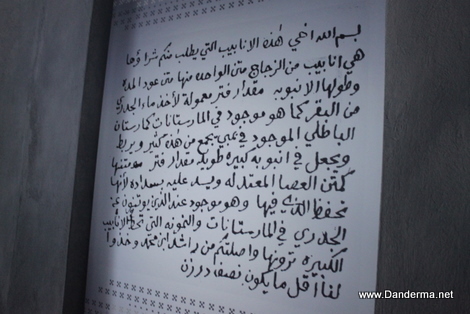 بسم الله اخي هذه الانابيب التي يطلب منكم شراؤها
هي انابيب من الزجاج متن الواحده منها متن عود المدة
وطولها الانبوبه مقدار فتر معمولة لأخذ ماء الجدري
من البقر كما هو موجود في المارستانات كمارستان
الباطلي الموجود في نمبي يجمع من هذه كثير و يربط
ويجعل في انبوبة كبيره طويلة مقدار فتر متنها
كمتن العصا المعتدله ويسد عليه بسداده لأنها
تحفظ الذي فيها وهو موجود عند الذين يوتنون عن
الجدري في المارستانات والنمونه التي تحط الأنابيب
الكبيره ترونها واصلتكم من راشد ابن محمد وخذوا
لنا أقل ما يكون نصف درزن
www.Danderma.net